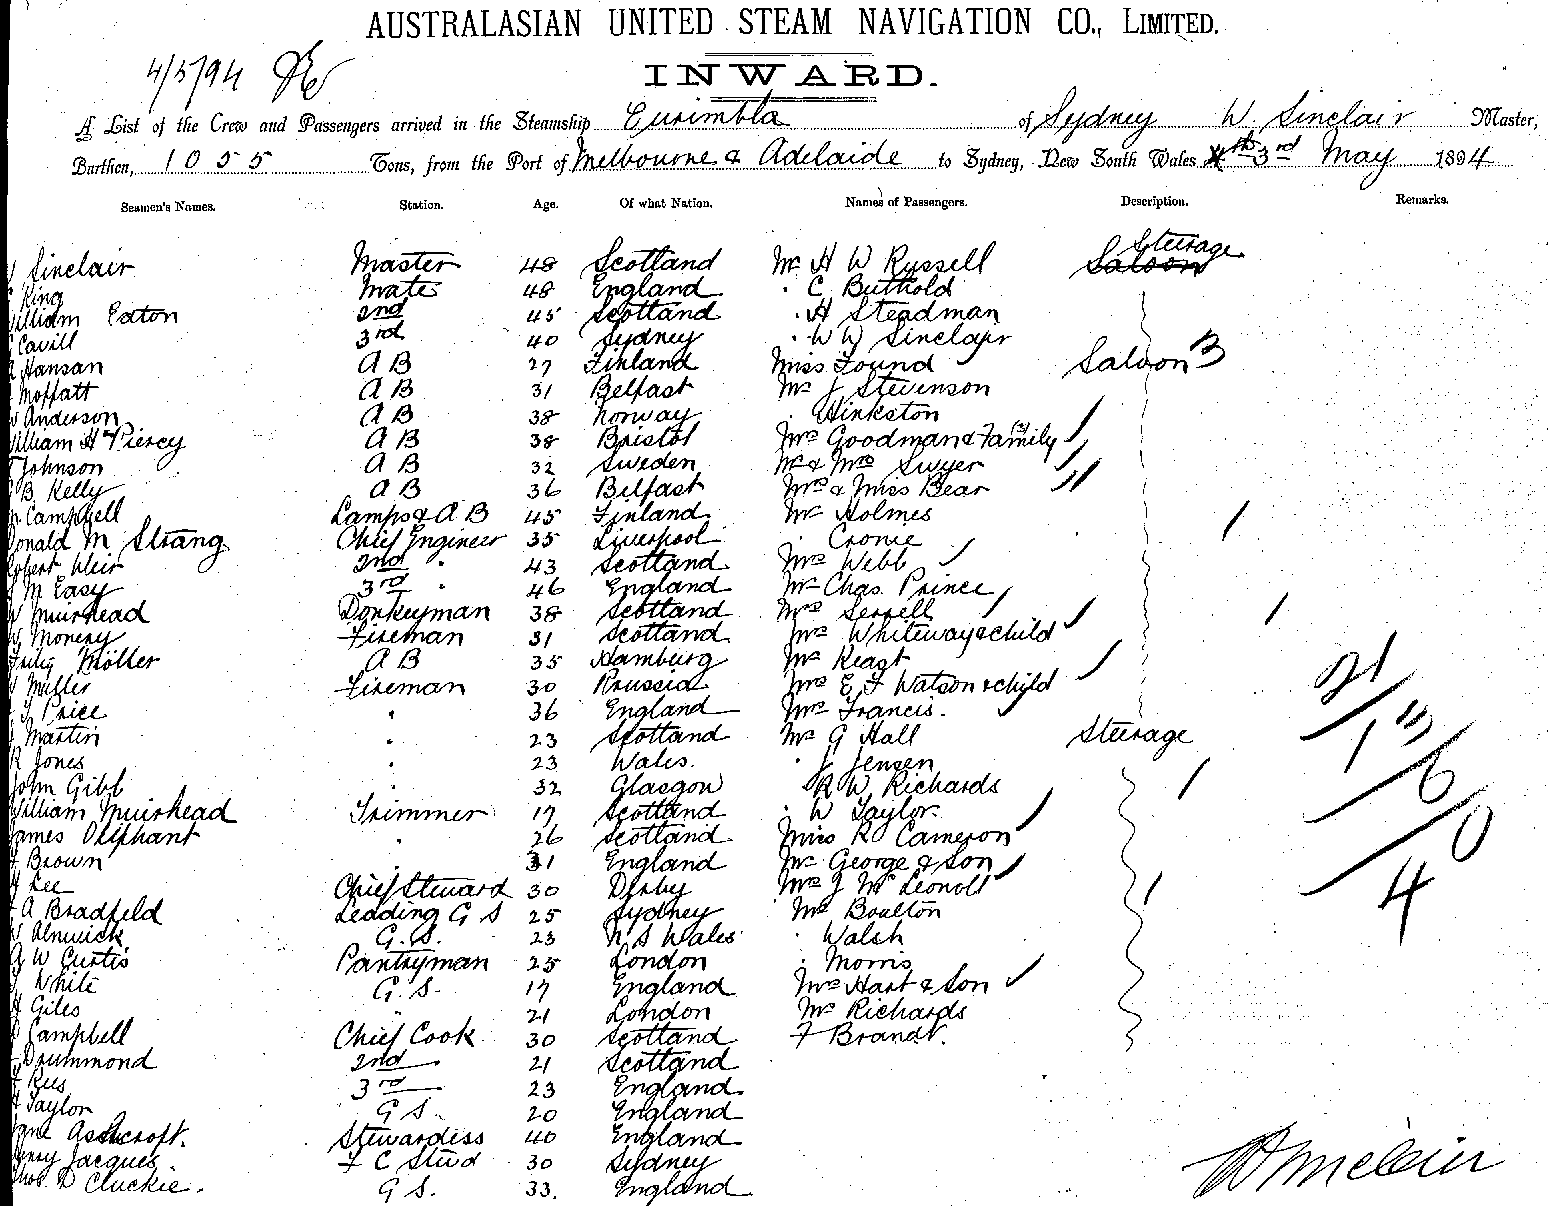 AUSTRALASIAN UNITED STEAM NAVIGATION CO., LIMITED.
4/5/94
INWARD.
A List of the Crew and Passengers arrived in the Steamship Eurimbla of Sydney W. Sinclair Master,
Burthen, 1055 Tons, from the Port of Melbourne & Adelaide to Sydney, New South Wales 3rd May 1894
Seamen's Names. Station. Age. Of what Nation. Names of Passengers. Description. Remarks.
Steerage
Sinclair Master 48 Scotland Mr H W Russell Saloon
King Mate 48 England " C Buthold
William Eaton 2nd 45 Scotland " H Steadman
Cavill 3rd 40 Sydney " W W Sinclair
Hansan A B 27 Finland Miss Found Saloon
Moffatt A B 31 Belfast Mr J Stevenson
Anderson A B 38 Norway " Hinkston
William H Piercy A B 38 Bristol Mrs Goodman & Family
Johnson A B 32 Sweden Mr & Mrs Swyer
B. Kelly A B 36 Belfast Mrs & Miss Bear
Campbell Lamps & A B 45 Finland Mr Holmes
Donald M Strang Chief Engineer 35 Liverpool " Cronie
Robert Weir 2nd " 43 Scotland Mrs Webb
M Easy 3rd " 46 England Mr Chas. Prince
Muirhead Donkeyman 38 Scotland Mrs Serrell
Moneny Fireman 31 Scotland Mrs Whiteway & child
Möller A B 35 Hamburg Mr
Miller Fireman 30 Russia Mrs E F Watson & child
Price " 36 England Mrs Francis.
Martin " 23 Scotland Mr G Hall Steerage
R Jones " 23 Wales. " J Jensen
John Gibb 32 Glasgow R W Richards
William Muirhead Trimmer 17 Scotland " W Taylor.
James Oliphant " 26 Scotland Miss R Cameron
Brown 31 England Mr George & Son
Lee Chief Steward 30 Derby Mrs J McLeonolt
A Bradfield Leading G S 25 Sydney Mr Boulton
Alnwick G. S. 23 N S Wales " Walsh
W Curtis Pantryman 25 London " Morris
White G. S. 17 England Mrs Hart & Son
Giles " 21 London Mr Richards
Campbell Chief Cook 30 Scotland F Brandt.
Drummond 2nd 21 Scotland
Rees 3rd 23 England
Taylor G S. 20 England
Jane Ashcroft. Stewardess 40 England
Henry Jacques. F C Stud 30 Sydney
Thos. D Cluckie. G S. 33. England
21
1
6
0
4
W Sinclair